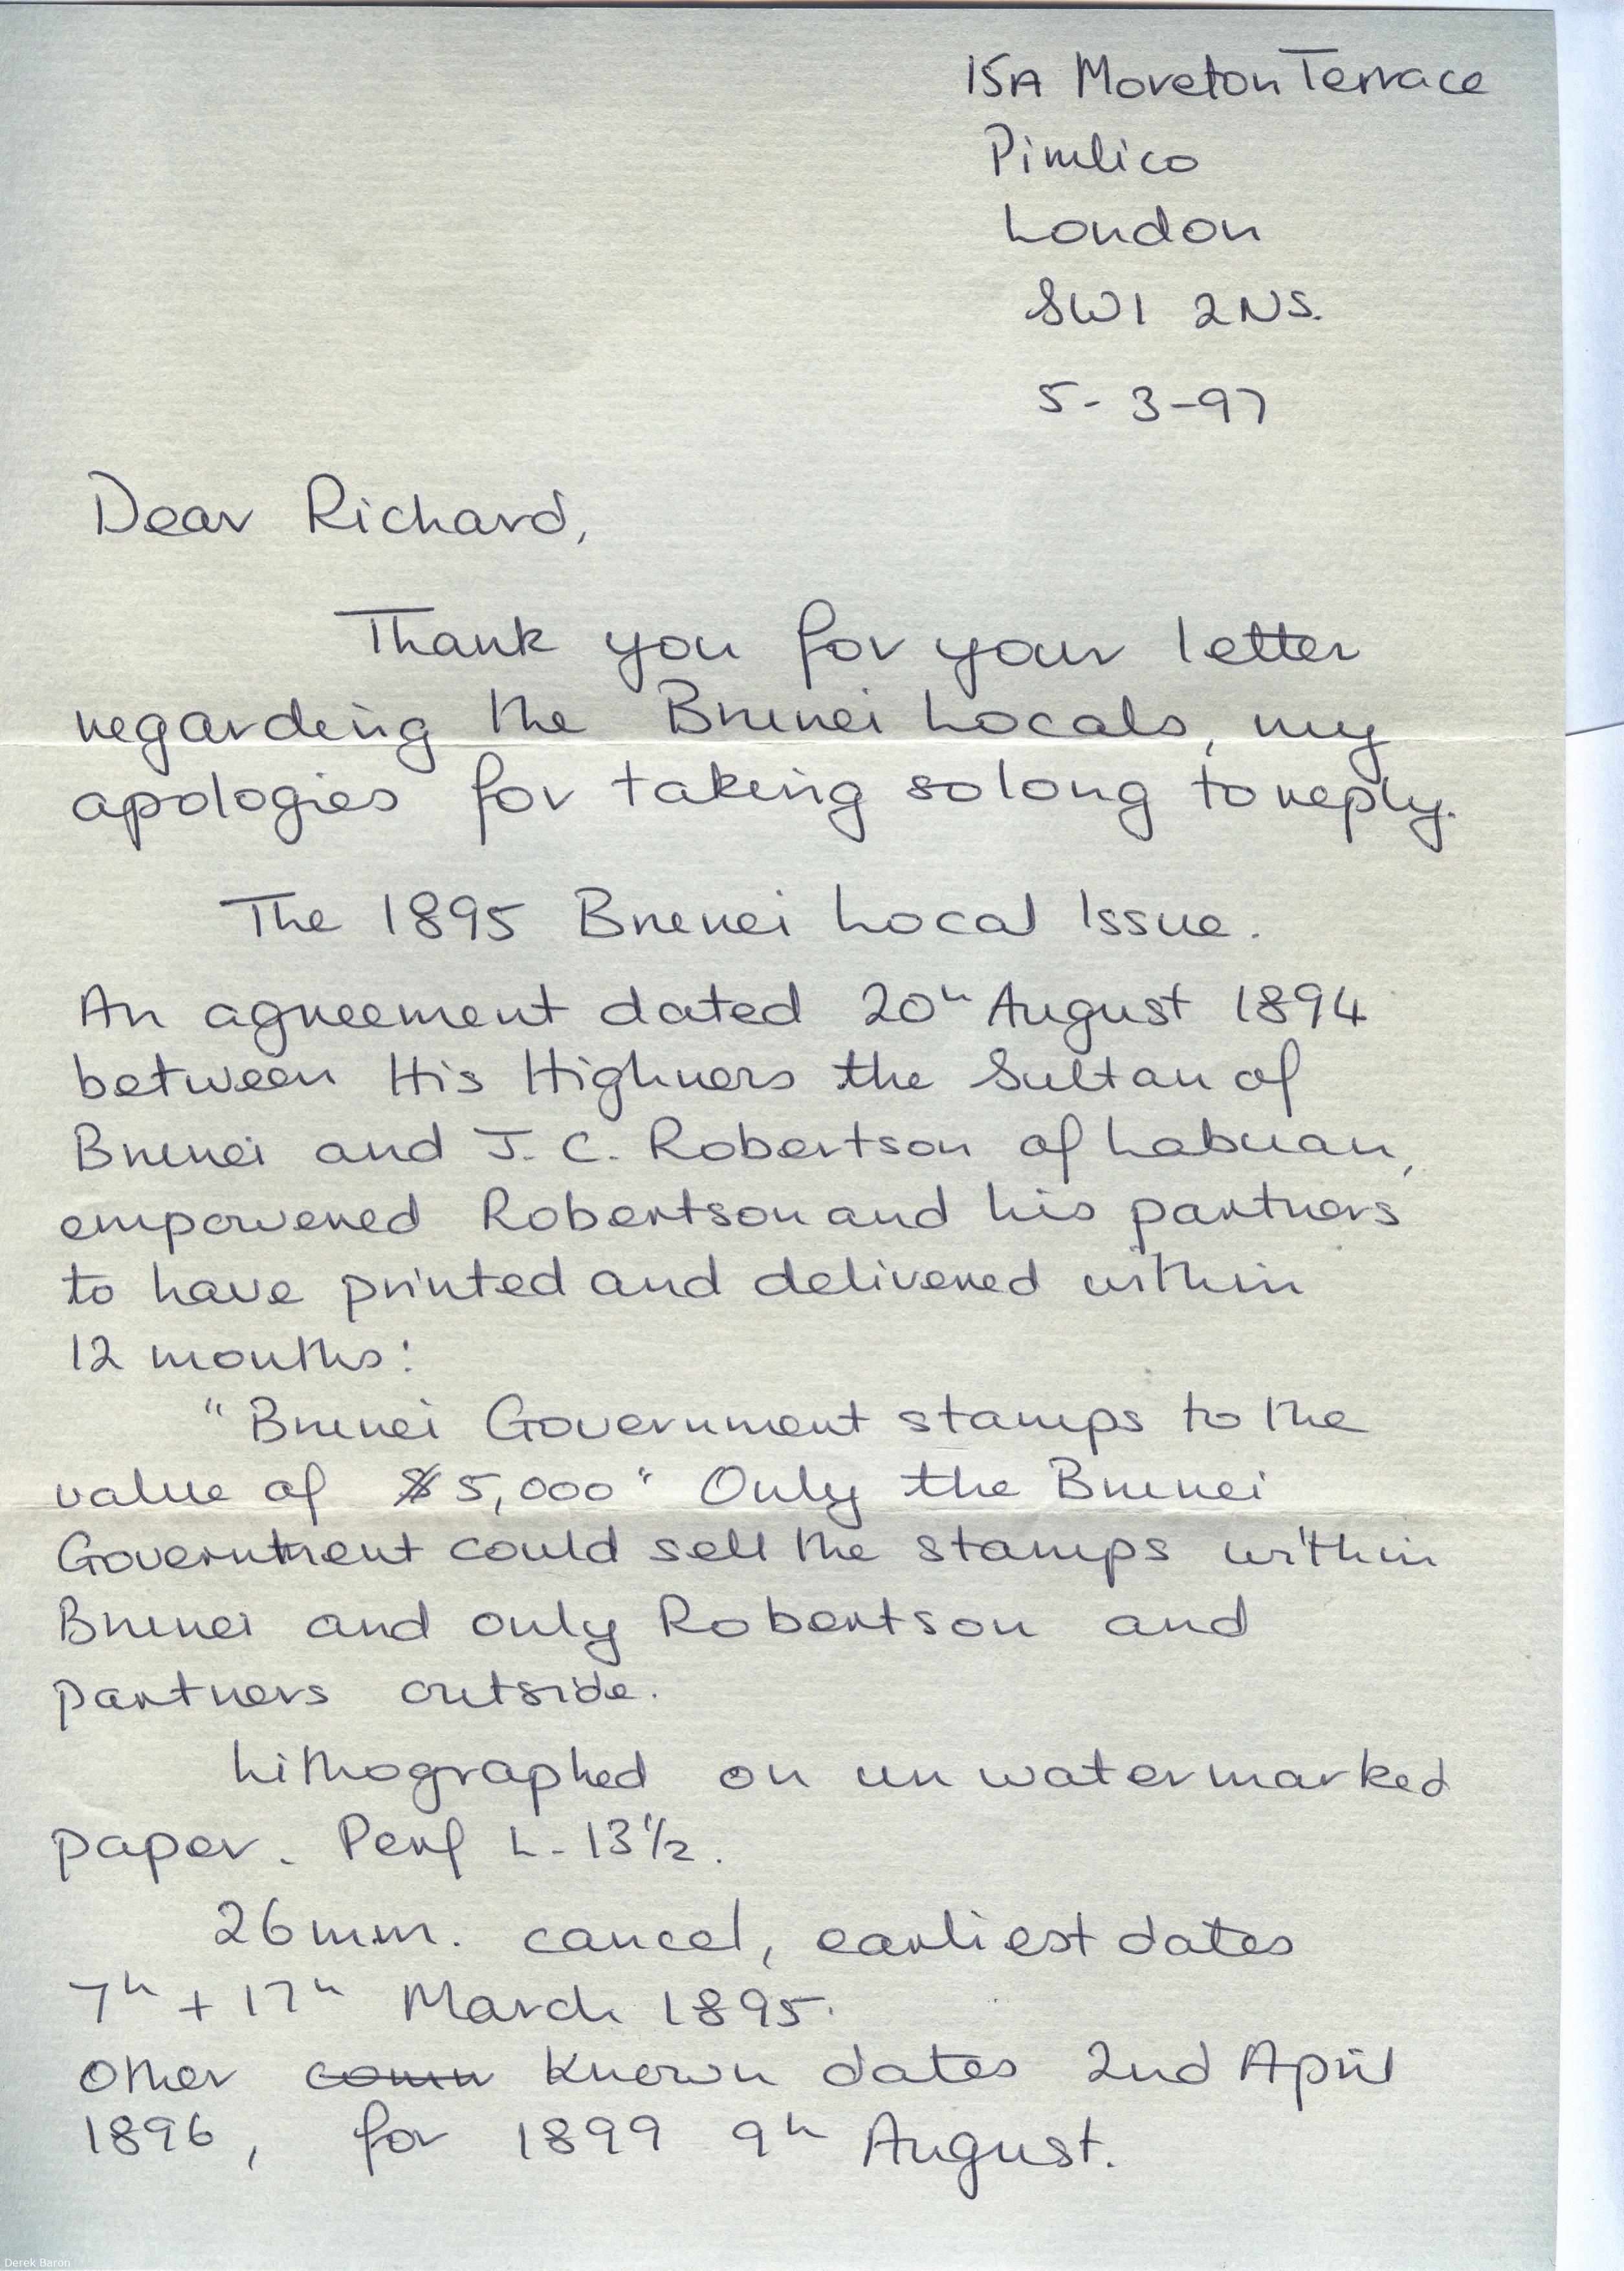 15A Moreton Terrace
Pimlico
London
SW1 2NS.
5-3-97
Dear Richard,
Thank you for your letter
regarding the Brunei Locals, my
apologies for taking so long to reply.
The 1895 Brunei Local Issue.
An agreement dated 20th August 1894
between His Highness the Sultan of
Brunei and J. C. Robertson of Labuan,
empowered Robertson and his partners
to have printed and delivered within
12 months:
"Brunei Government stamps to the
value of $5,000" Only the Brunei
Government could sell the stamps within
Brunei and only Robertson and
partners outside.
Lithographed on unwatermarked
paper. Perf L-13½.
26mm. cancel, earliest dates
7th + 17th March 1895.
Other known dates 2nd April
1896, for 1899 9th August.
Derek Baron